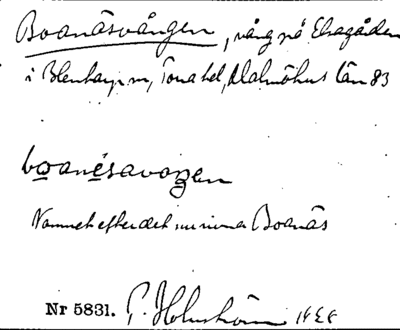 Boanäsvången, vång på Ekagården
i Blenhayn m, Torna hd, Malmöhus län 83
boanésavoŋen
Namnet efter det nu rivna Boanäs
Nr 5831. G. Holmström